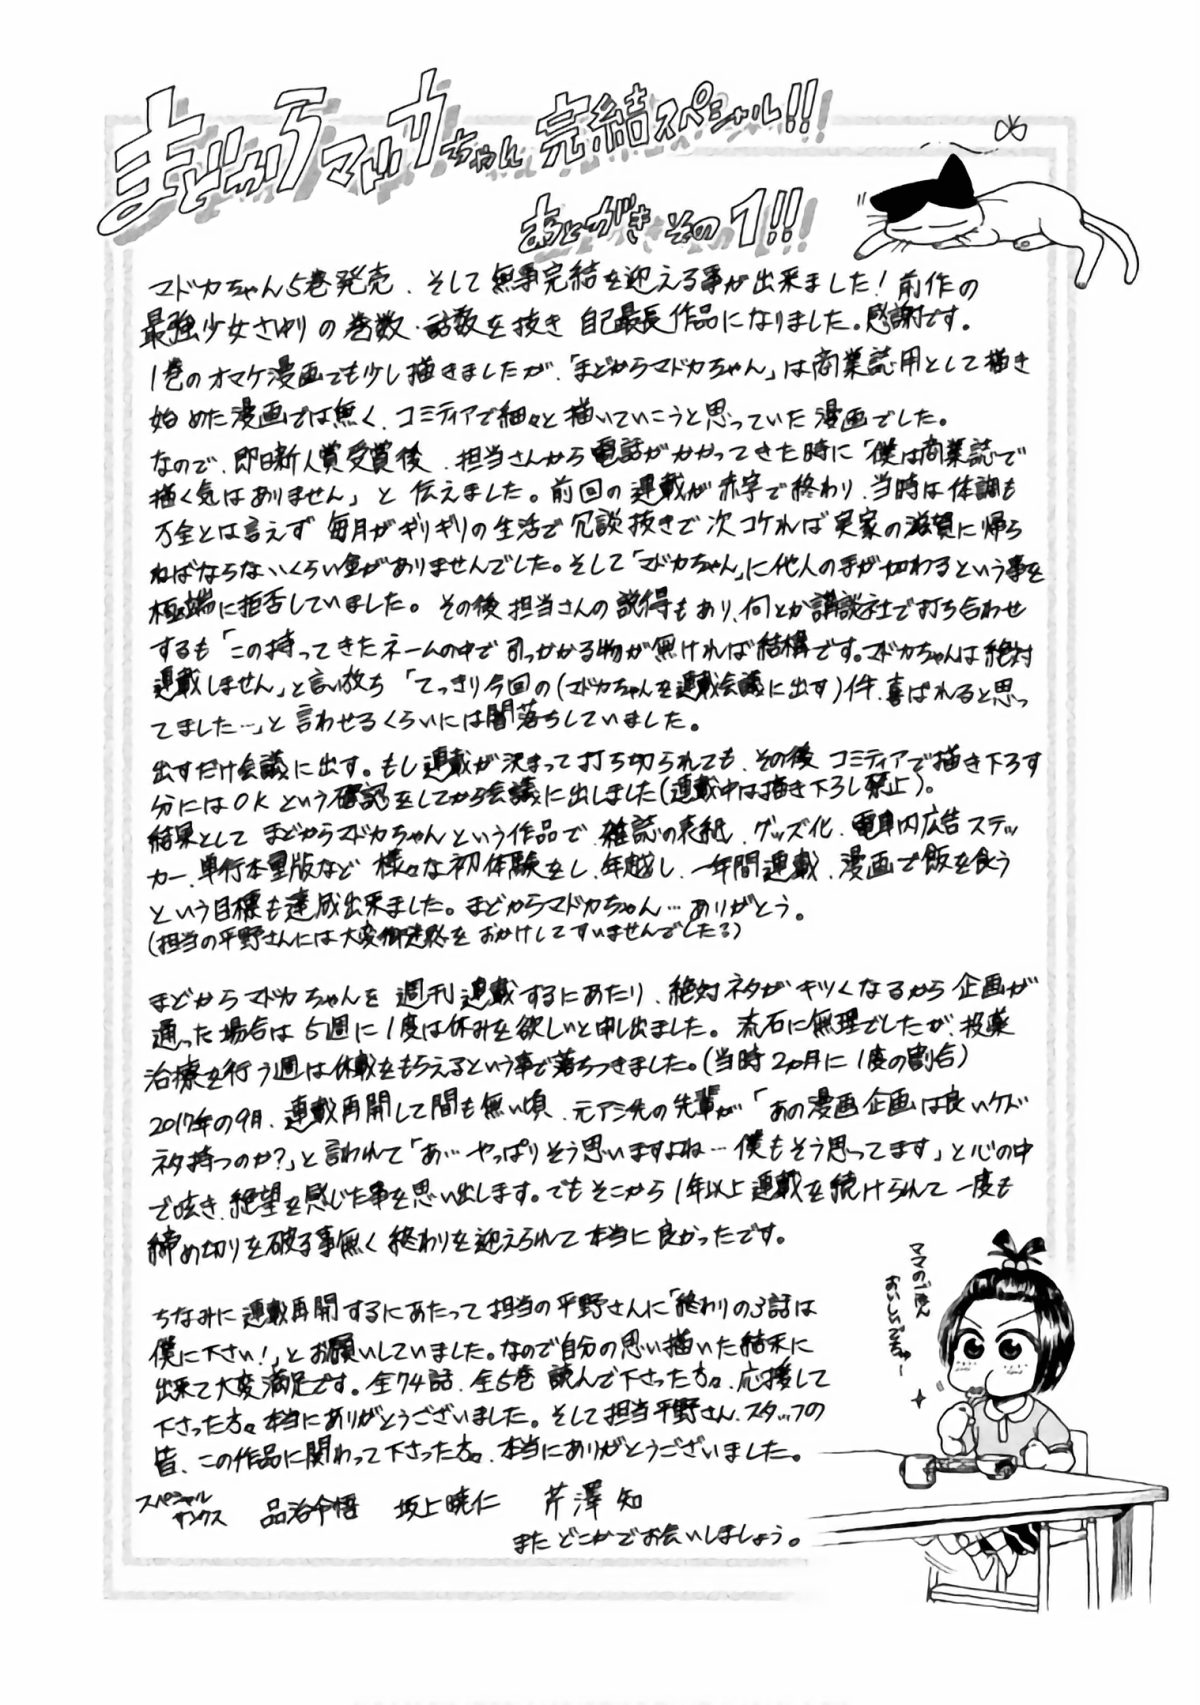 まどからマドカちゃん 完結スペシャル!!
あとがき その1!!
マドカちゃん5巻発売、そして無事完結を迎える事が出来ました!前作の
最強少女さゆりの巻数・話数を抜き 自己最長作品になりました。感謝です。
1巻のオマケ漫画でも少し描きましたが、「まどからマドカちゃん」は商業誌用として描き
始めた漫画では無く、コミティアで細々と描いていこうと思っていた漫画でした。
なので、即日新人賞受賞後、担当さんから電話がかかってきた時に「僕は商業誌で
描く気はありません」と伝えました。前回の連載が赤字で終わり、当時は体調も
万全とは言えず 毎月がギリギリの生活で冗談抜きで次コケれば実家の滋賀に帰ら
ねばならないくらい金がありませんでした。そして「マドカちゃん」に他人の手が加わるという事を
極端に拒否していました。その後担当さんの説得もあり、何とか講談社で打ち合わせ
するも「この持ってきたネームの中で引っかかる物が無ければ結構です。マドカちゃんは絶対
連載しません」と言い放ち「てっきり今回の(マドカちゃんを連載会議に出す)件、喜ばれると思っ
てました…」と言わせるくらいには闇落ちしていました。
出すだけ会議に出す。もし連載が決まって打ち切られても、その後コミティアで描き下ろす
分にはOKという確認をしてから会議に出しました(連載中は描き下ろし禁止)。
結果として まどからマドカちゃんという作品で 雑誌の表紙、グッズ化、電車内広告ステッ
カー、単行本重版など 様々な初体験をし、年越し、一年間連載、漫画で飯を食う
という目標も達成出来ました。まどからマドカちゃん…ありがとう。
(担当の平野さんには大変御迷惑をおかけしてすいませんでした3)
まどからマドカちゃんを 週刊連載するにあたり、絶対ネタがキツくなるから企画が
通った場合は5週に1度は休みを欲しいと申し出ました。流石に無理でしたが、投薬
治療を行う週は休載をもらえるという事で落ちつきました。(当時2ヵ月に1度の割合)
2017年の9月、連載再開して間も無い頃、元アシ先の先輩が「あの漫画企画は良いケド
ネタ持つのか?」と言われて「あ…やっぱりそう思いますよね…僕もそう思ってます」と心の中
で呟き、絶望を感じた事を思い出します。でもそこから1年以上連載を続けられて一度も
締め切りを破る事無く終わりを迎えられて本当に良かったです。
ちなみに連載再開するにあたって担当の平野さんに「終わりの3話は
僕に下さい!」とお願いしていました。なので自分の思い描いた結末に
出来て大変満足です。全74話、全5巻 読んで下さった方々、応援して
下さった方々本当にありがとうございました。そして担当平野さん、スタッフの
皆、この作品に関わって下さった方々、本当にありがとうございました。
スペシャル
サンクス 品治令悟 坂上暁仁 芹澤 知
またどこかでお会いしましょう。
ママのごはん
おいしいでちゅー